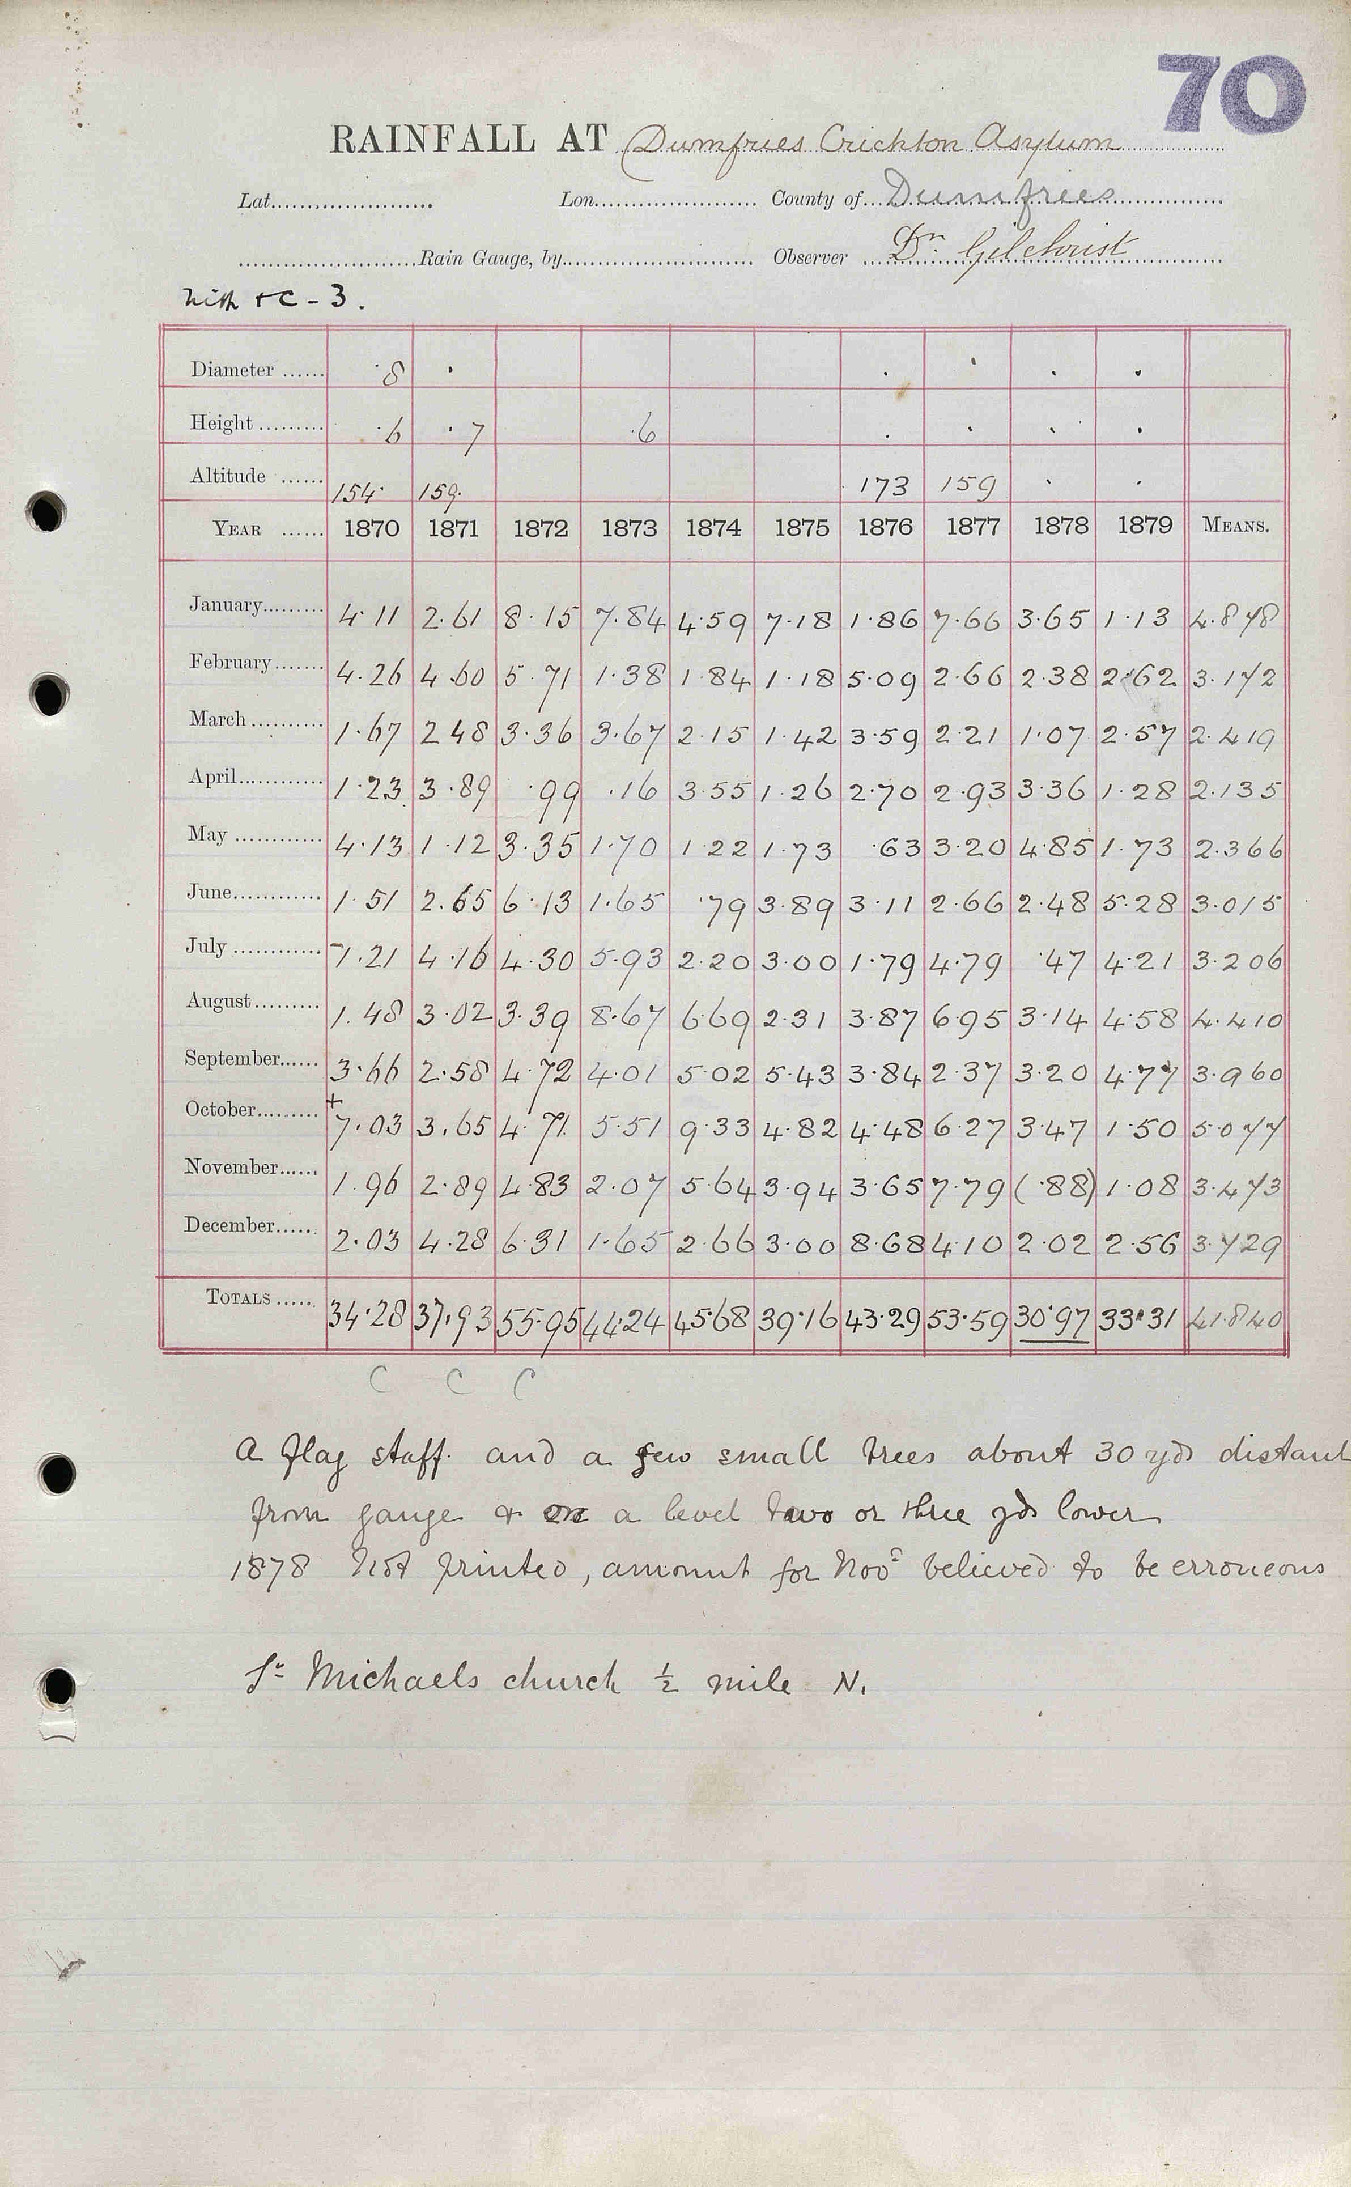 70
RAINFALL AT Dumfries Crichton Asylum
Lat. Lon. County of Dumfries
Rain Gauge, by Observer Dr. Gilchrist
Nith + C - 3.
Diameter ...... 8 ·
Height ......... ·6 ·7 ·6
Altitude ...... 154 159 173 159
YEAR ...... 1870 1871 1872 1873 1874 1875 1876 1877 1878 1879 MEANS.
January......... 4·11 2.61 8·15 7.84 4·59 7·18 1·86 7·66 3·65 1·13 4.878
February....... 4.26 4.60 5.71 1.38 1.84 1.18 5.09 2.66 2.38 2.62 3.172
March.......... 1.67 2 48 3.36 3.67 2.15 1.42 3.59 2.21 1.07 2.57 2.419
April............ 1.23 3.89 ·99 ·16 3.55 1.26 2.70 2.93 3.36 1.28 2.135
May ............ 4.13 1.12 3.35 1.70 1.22 1.73 ·63 3.20 4.85 1.73 2.366
June............ 1.51 2.65 6.13 1.65 ·79 3.89 3.11 2.66 2.48 5.28 3.015
July ............ 1.21 4.16 4.30 5.93 2.20 3.00 1.79 4.79 ·47 4.21 3.206
August......... 1.48 3.02 3.39 8.67 6.69 2.31 3.87 6.95 3.14 4.58 4.410
September...... 3.66 2.58 4.72 4.01 5.02 5.43 3.84 2.37 3.20 4.77 3.960
October......... + 7.03 3.65 4.71 5.51 9.33 4.82 4.48 6.27 3.47 1.50 5.077
November...... 1.96 2.89 4.83 2.07 5.64 3.94 3.65 7.79 (·88) 1.08 3.473
December...... 2.03 4.28 6.31 1.65 2.66 3.00 8.68 4.10 2.02 2.56 3.729
TOTALS ..... 34.28 37.93 55.95 44.24 45.68 39.16 43.29 53.59 30.97 33.31 41.840
C C C
A flag staff and a few small trees about 30 yds distant
from gauge & on a level two or three yds lower
1878 Not printed, amount for Novr believed to be erroneous
St Michaels church ½ mile N.